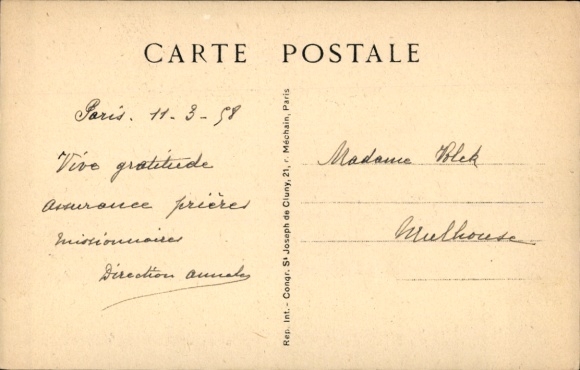 CARTE POSTALE
Paris. 11-3-58
Vive gratitude
assurance prières
missionnaires
Direction annales
Rep. Int. - Congr. St Joseph de Cluny, 21, r. Méchain, Paris
Madame
Mulhouse